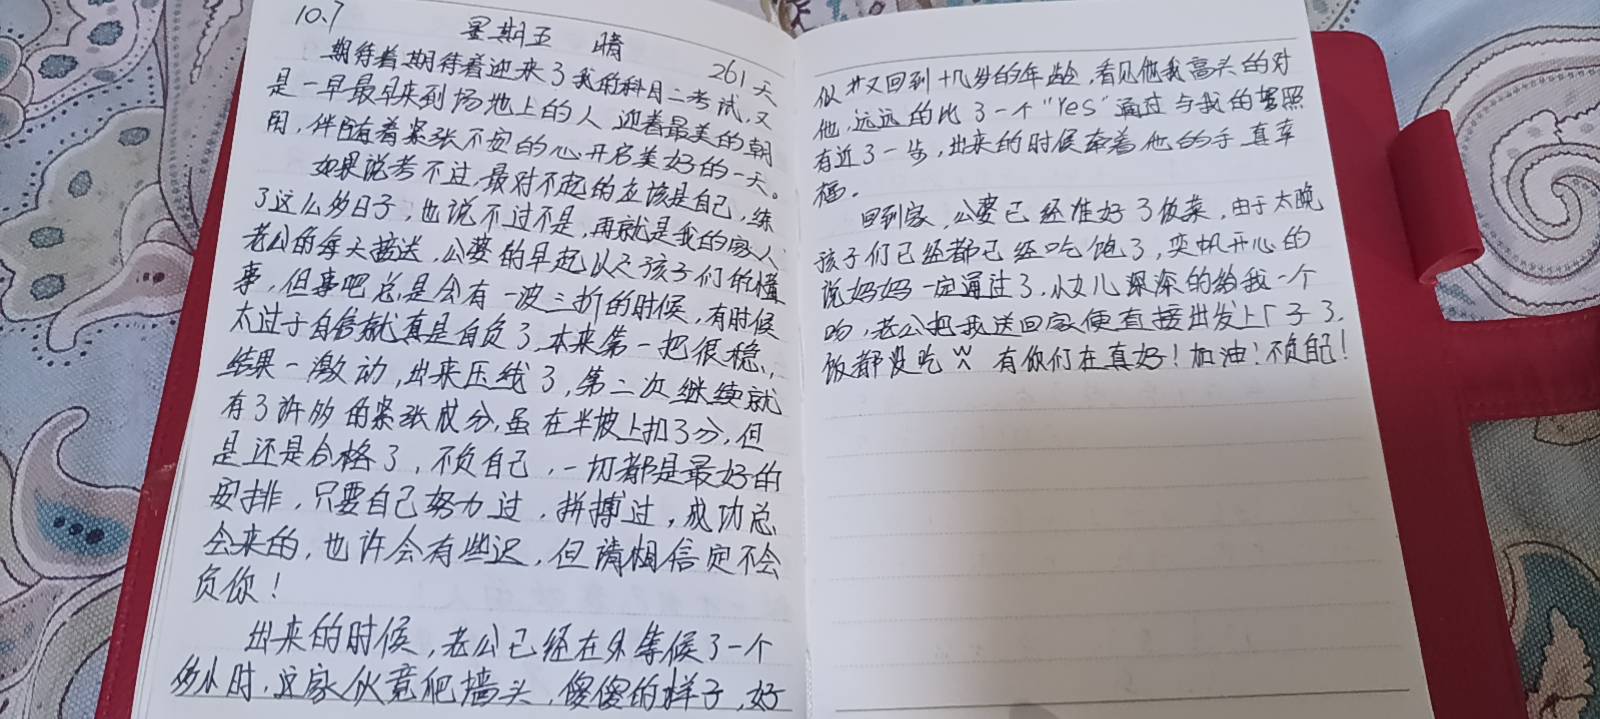 10.7 星期五 晴 261天
期待着期待着迎来了我的科目二考试,又
是一早最早来到场地上的人 迎着最美的朝
阳,伴随着紧张不安的心开启美好的一天。
如果说考不过,最对不起的应该是自己,练
了这么多日子,也说不过不是,再就是我的家人
老公的每天接送,公婆的早起以及孩子们的懂
事,但事吧总是会有一波三折的时候,有时候
太过于自信就真是自负了,本来第一把很稳,
结果一激动,出来压线了,第二次继续就
有了许多的紧张成分,虽在半坡上扣了分,但
是还是合格了,不负自己,一切都是最好的
安排,只要自己努力过,拼搏过,成功总
会来的,也许会有些迟,但请相信定不会
负你!
出来的时候,老公已经在外等候了一个
多小时,这家伙竟爬墙头,傻傻的样子,好
似又回到十几岁的年龄,看见他我高头的对
他,远远的比了一个"Yes"通过与我的驾照
有近了一步,出来的时候牵着他的手 真幸
福。
回到家,公婆已经准好了饭菜,由于太晚
孩子们已经都已经吃饱了,奕帆开心的
说妈妈一定通过了,小女儿深深的给我一个
吻,老公把我送回家便直接出发上厂子了,
饭都没吃 有你们在真好!加油!不负自己!